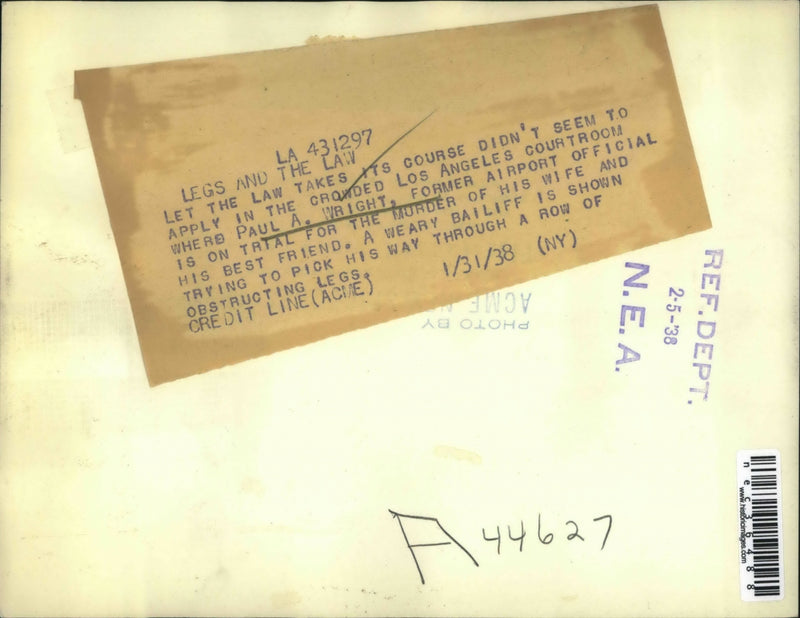 LA 431297
LEGS AND THE LAW
LET THE LAW TAKES ITS COURSE DIDN'T SEEM TO
APPLY IN THE CROWDED LOS ANGELES COURTROOM
WHERE PAUL A. WRIGHT, FORMER AIRPORT OFFICIAL
IS ON TRIAL FOR THE MURDER OF HIS WIFE AND
HIS BEST FRIEND. A WEARY BAILIFF IS SHOWN
TRYING TO PICK HIS WAY THROUGH A ROW OF
OBSTRUCTING LEGS.
CREDIT LINE(ACME) 1/31/38 (NY)
PHOTO BY
ACME
REF. DEPT.
2-5-'38
N.E.A.
A 44627
nec36488
www.historicimages.com